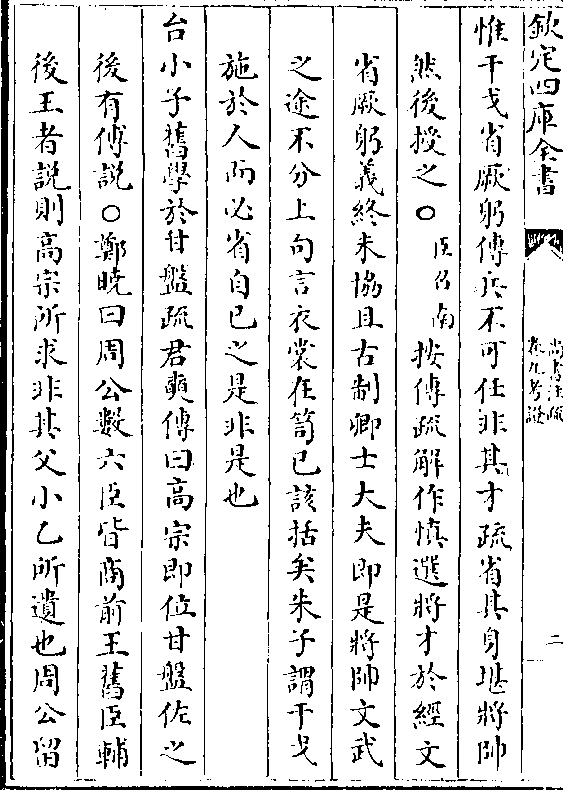 欽定四庫全書
尚書注疏
卷九考證
二
惟干戈省厥躬傳兵不可任非其才疏省其身堪將帥
然後授之○臣召南按傳疏解作慎選將才於經文
省厥躬義終未協且古制卿士大夫即是將帥文武
之途不分上句言衣裳在笥已該括矣朱子謂干戈
施於人而必省自己之是非是也
台小子舊學於甘盤疏君奭傳曰高宗即位甘盤佐之
後有傅説○鄭曉曰周公數六臣皆商前王舊臣輔
後王者説則高宗所求非其父小乙所遺也周公留